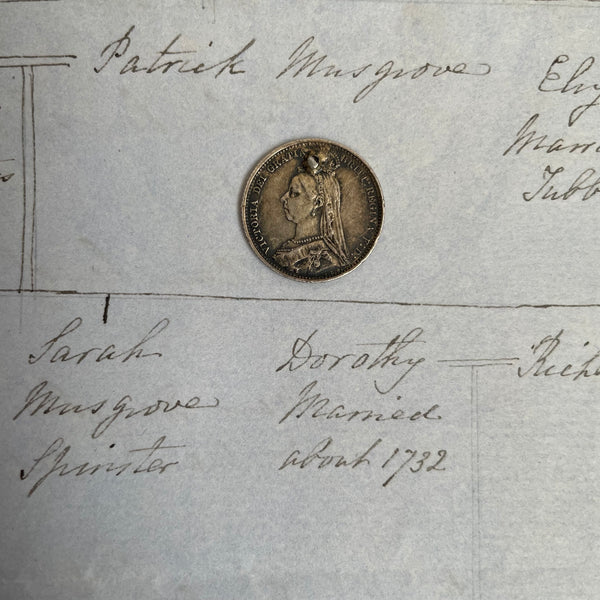 Patrick Musgrove
Marri
Tubb
VICTORIA DEI GRATIA REGINA
Sarah
Musgrove
Spinster
Dorothy
Married
about 1732
Rich